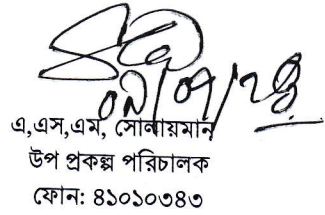 ০৯/০৮/২৪
এ,এস,এম, সোলায়মান
উপ প্রকল্প পরিচালক
ফোন: ৪১০১০৩৪৩